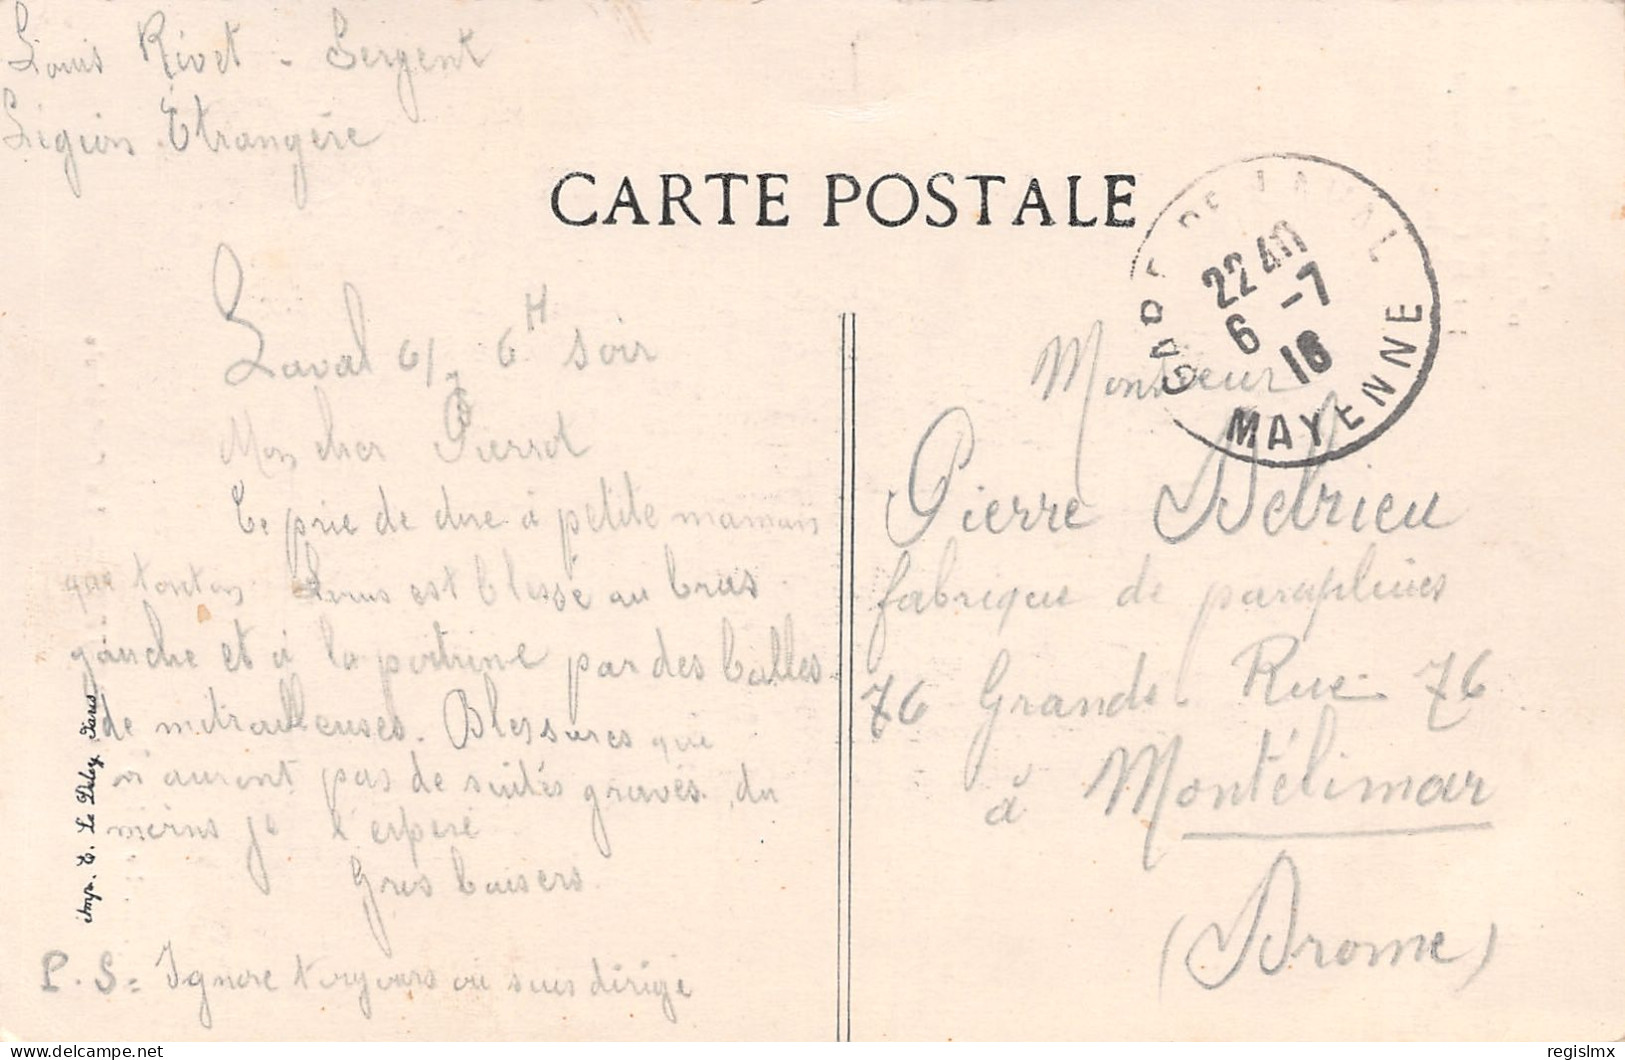 Louis Rivet - Sergent
Légion Étrangère
CARTE POSTALE
GARE DE LAVAL
22 40
6 -7
16
MAYENNE
Laval 6/7 6H soir
Mon cher Pierrot
Te prie de dire à petite maman
que tonton Louis est blessé au bras
gauche et à la poitrine par des balles
de mitrailleuses. Blessures qui
n'auront pas de suites graves, du
moins je l'espère
Gros baisers.
P.S = Ignore toujours où suis dirigé
Monsieur
Pierre Delrieu
fabrique de parapluies
76 Grande Rue 76
à Montélimar
(Drome)
Imp. E. Le Deley, Paris
regislmx